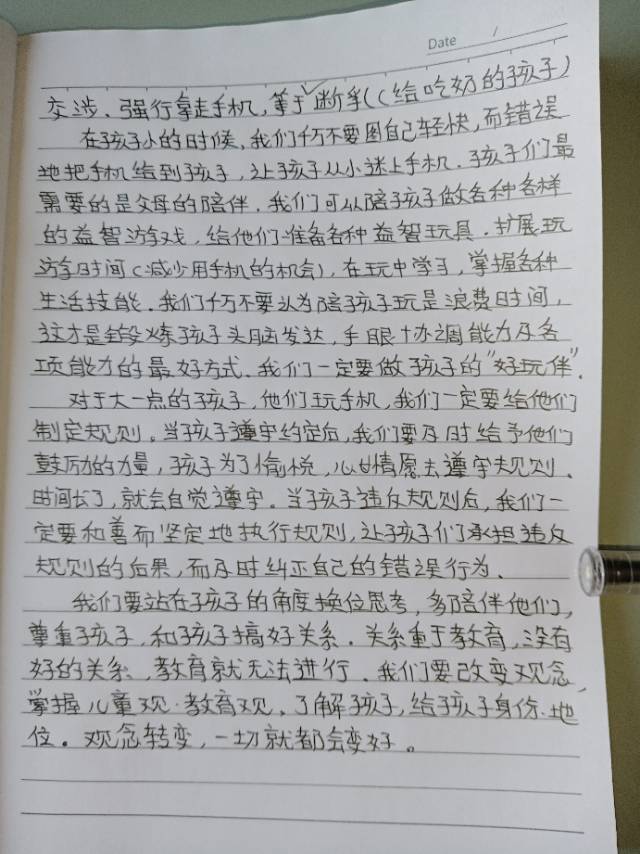 Date /
交涉. 强行拿走手机, 等于断手((给吃奶的孩子)
在孩子小的时候, 我们千万不要图自己轻快, 而错误
地把手机给到孩子, 让孩子从小迷上手机. 孩子们最
需要的是父母的陪伴. 我们可以陪孩子做各种各样
的益智游戏, 给他们准备各种益智玩具. 扩展玩
游戏时间(减少用手机的机会), 在玩中学习, 掌握各种
生活技能. 我们千万不要认为陪孩子玩是浪费时间,
这才是锻炼孩子头脑发达, 手眼协调能力及各
项能力的最好方式. 我们一定要做孩子的“好玩伴”.
对于大一点的孩子, 他们玩手机, 我们一定要给他们
制定规则. 当孩子遵守约定后, 我们要及时给予他们
鼓励的力量, 孩子为了愉悦, 心甘情愿去遵守规则.
时间长了, 就会自觉遵守. 当孩子违反规则后, 我们一
定要和善而坚定地执行规则, 让孩子们承担违反
规则的后果, 而及时纠正自己的错误行为.
我们要站在孩子的角度换位思考, 多陪伴他们,
尊重孩子, 和孩子搞好关系. 关系重于教育, 没有
好的关系, 教育就无法进行. 我们要改变观念,
掌握儿童观·教育观. 了解孩子, 给孩子身份·地
位. 观念转变, 一切就都会变好.